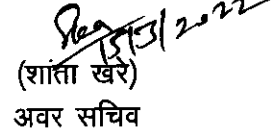 15/3/2022
(शांता खरे)
अवर सचिव